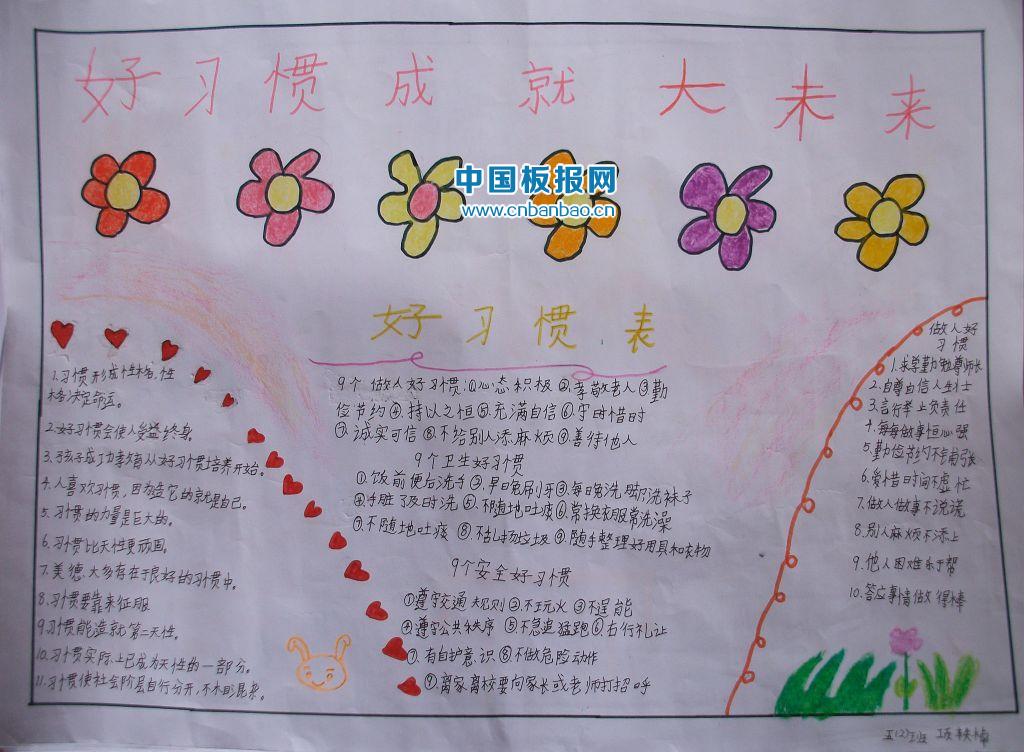 好习惯成就大未来
中国板报网
www.cnbanbao.cn
好习惯表
1.习惯形成性格,性
格决定命运。
2.好习惯会使人受益终身。
3.孩子成功教育从好习惯培养开始。
4.人喜欢习惯,因为造它的就是自己。
5.习惯的力量是巨大的。
6.习惯比天性更顽固。
7.美德大多存在于良好的习惯中。
8.习惯要靠来征服
9.习惯能造就第二天性。
10.习惯实际上已成为天性的一部分。
11.习惯使社会阶层自行分开,不相混杂。
9个做人好习惯:①心态积极②孝敬老人③勤
俭节约④持以之恒⑤充满自信⑥守时惜时
⑦诚实可信⑧不给别人添麻烦⑨善待他人
9个卫生好习惯
①饭前便后洗手②.早晚刷牙③每晚洗脚洗袜子
④手脏了及时洗⑤不随地吐痰⑥常换衣服常洗澡
⑦.不随地吐痰⑧不乱扔垃圾⑨随手整理好用具和衣物
9个安全好习惯
①遵守交通规则②.不玩火③不逞能
④遵守公共秩序⑤不急追猛跑⑥右行礼让
⑦.有自护意识⑧不做危险动作
⑨离家离校要向家长或老师打招呼
做人好
习惯
1.求学勤勉尊师长
2.自尊自信人生
3.言行举止负责任
4.每每做事恒心强
5.勤俭节约不
6.爱惜时间不虚忙
7.做人做事不说谎
8.别人麻烦不添上
9.他人困难乐于帮
10.答应事情做得棒
五(2)班